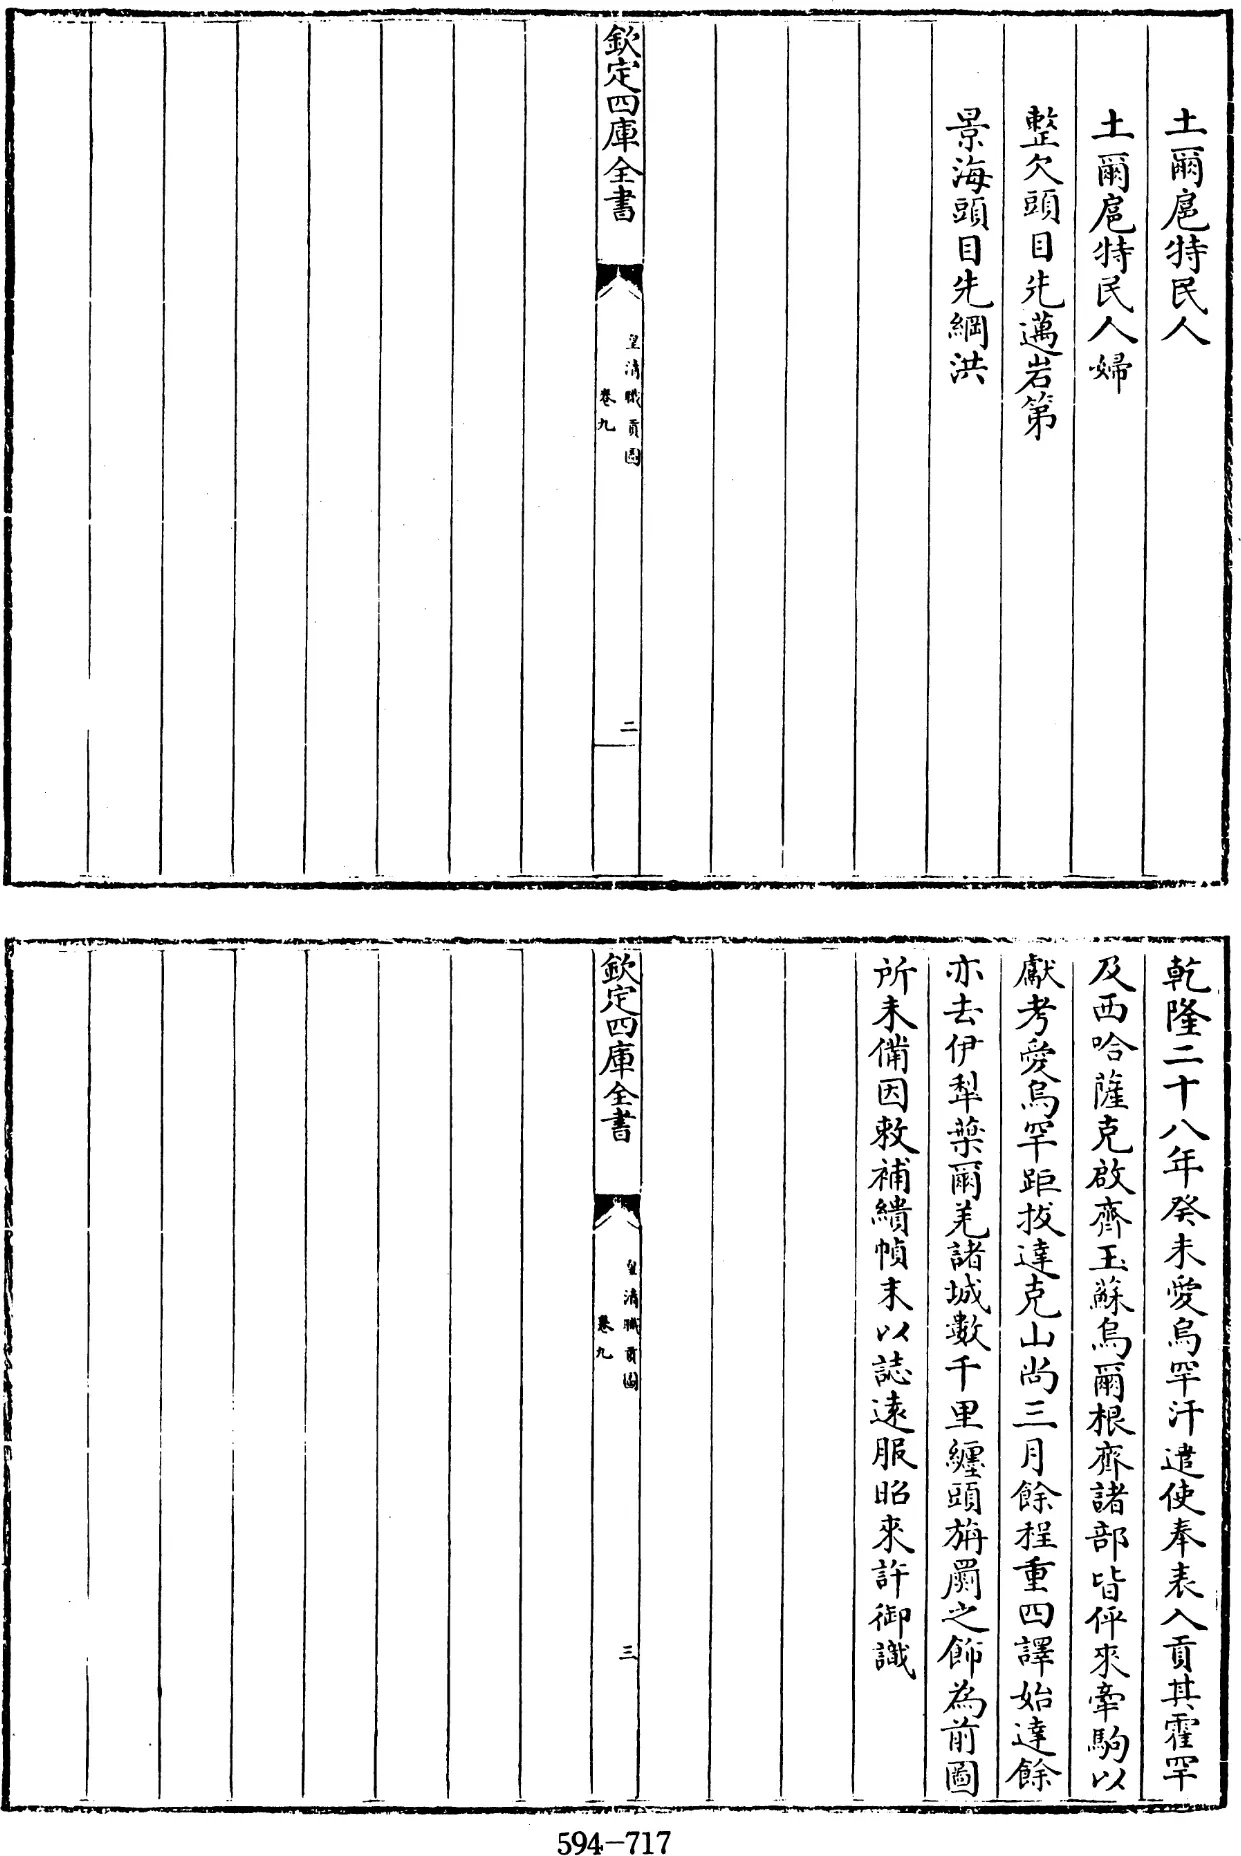 土爾扈特民人
土爾扈特民人婦
整欠頭目先邁岩第
景海頭目先綱洪
欽定四庫全書
皇清職貢圖
卷九
二
乾隆二十八年癸未愛烏罕汗遣使奉表入貢其霍罕
及西哈薩克啟齊玉蘇烏爾根齊諸部皆伻來牽駒以
獻考愛烏罕距拔達克山尚三月餘程重四譯始達餘
亦去伊犁葉爾羌諸城數千里纏頭旃罽之飾為前圖
所未備因敕補繢幀末以誌遠服昭來許御識
欽定四庫全書
皇清職貢圖
卷九
三
594-717